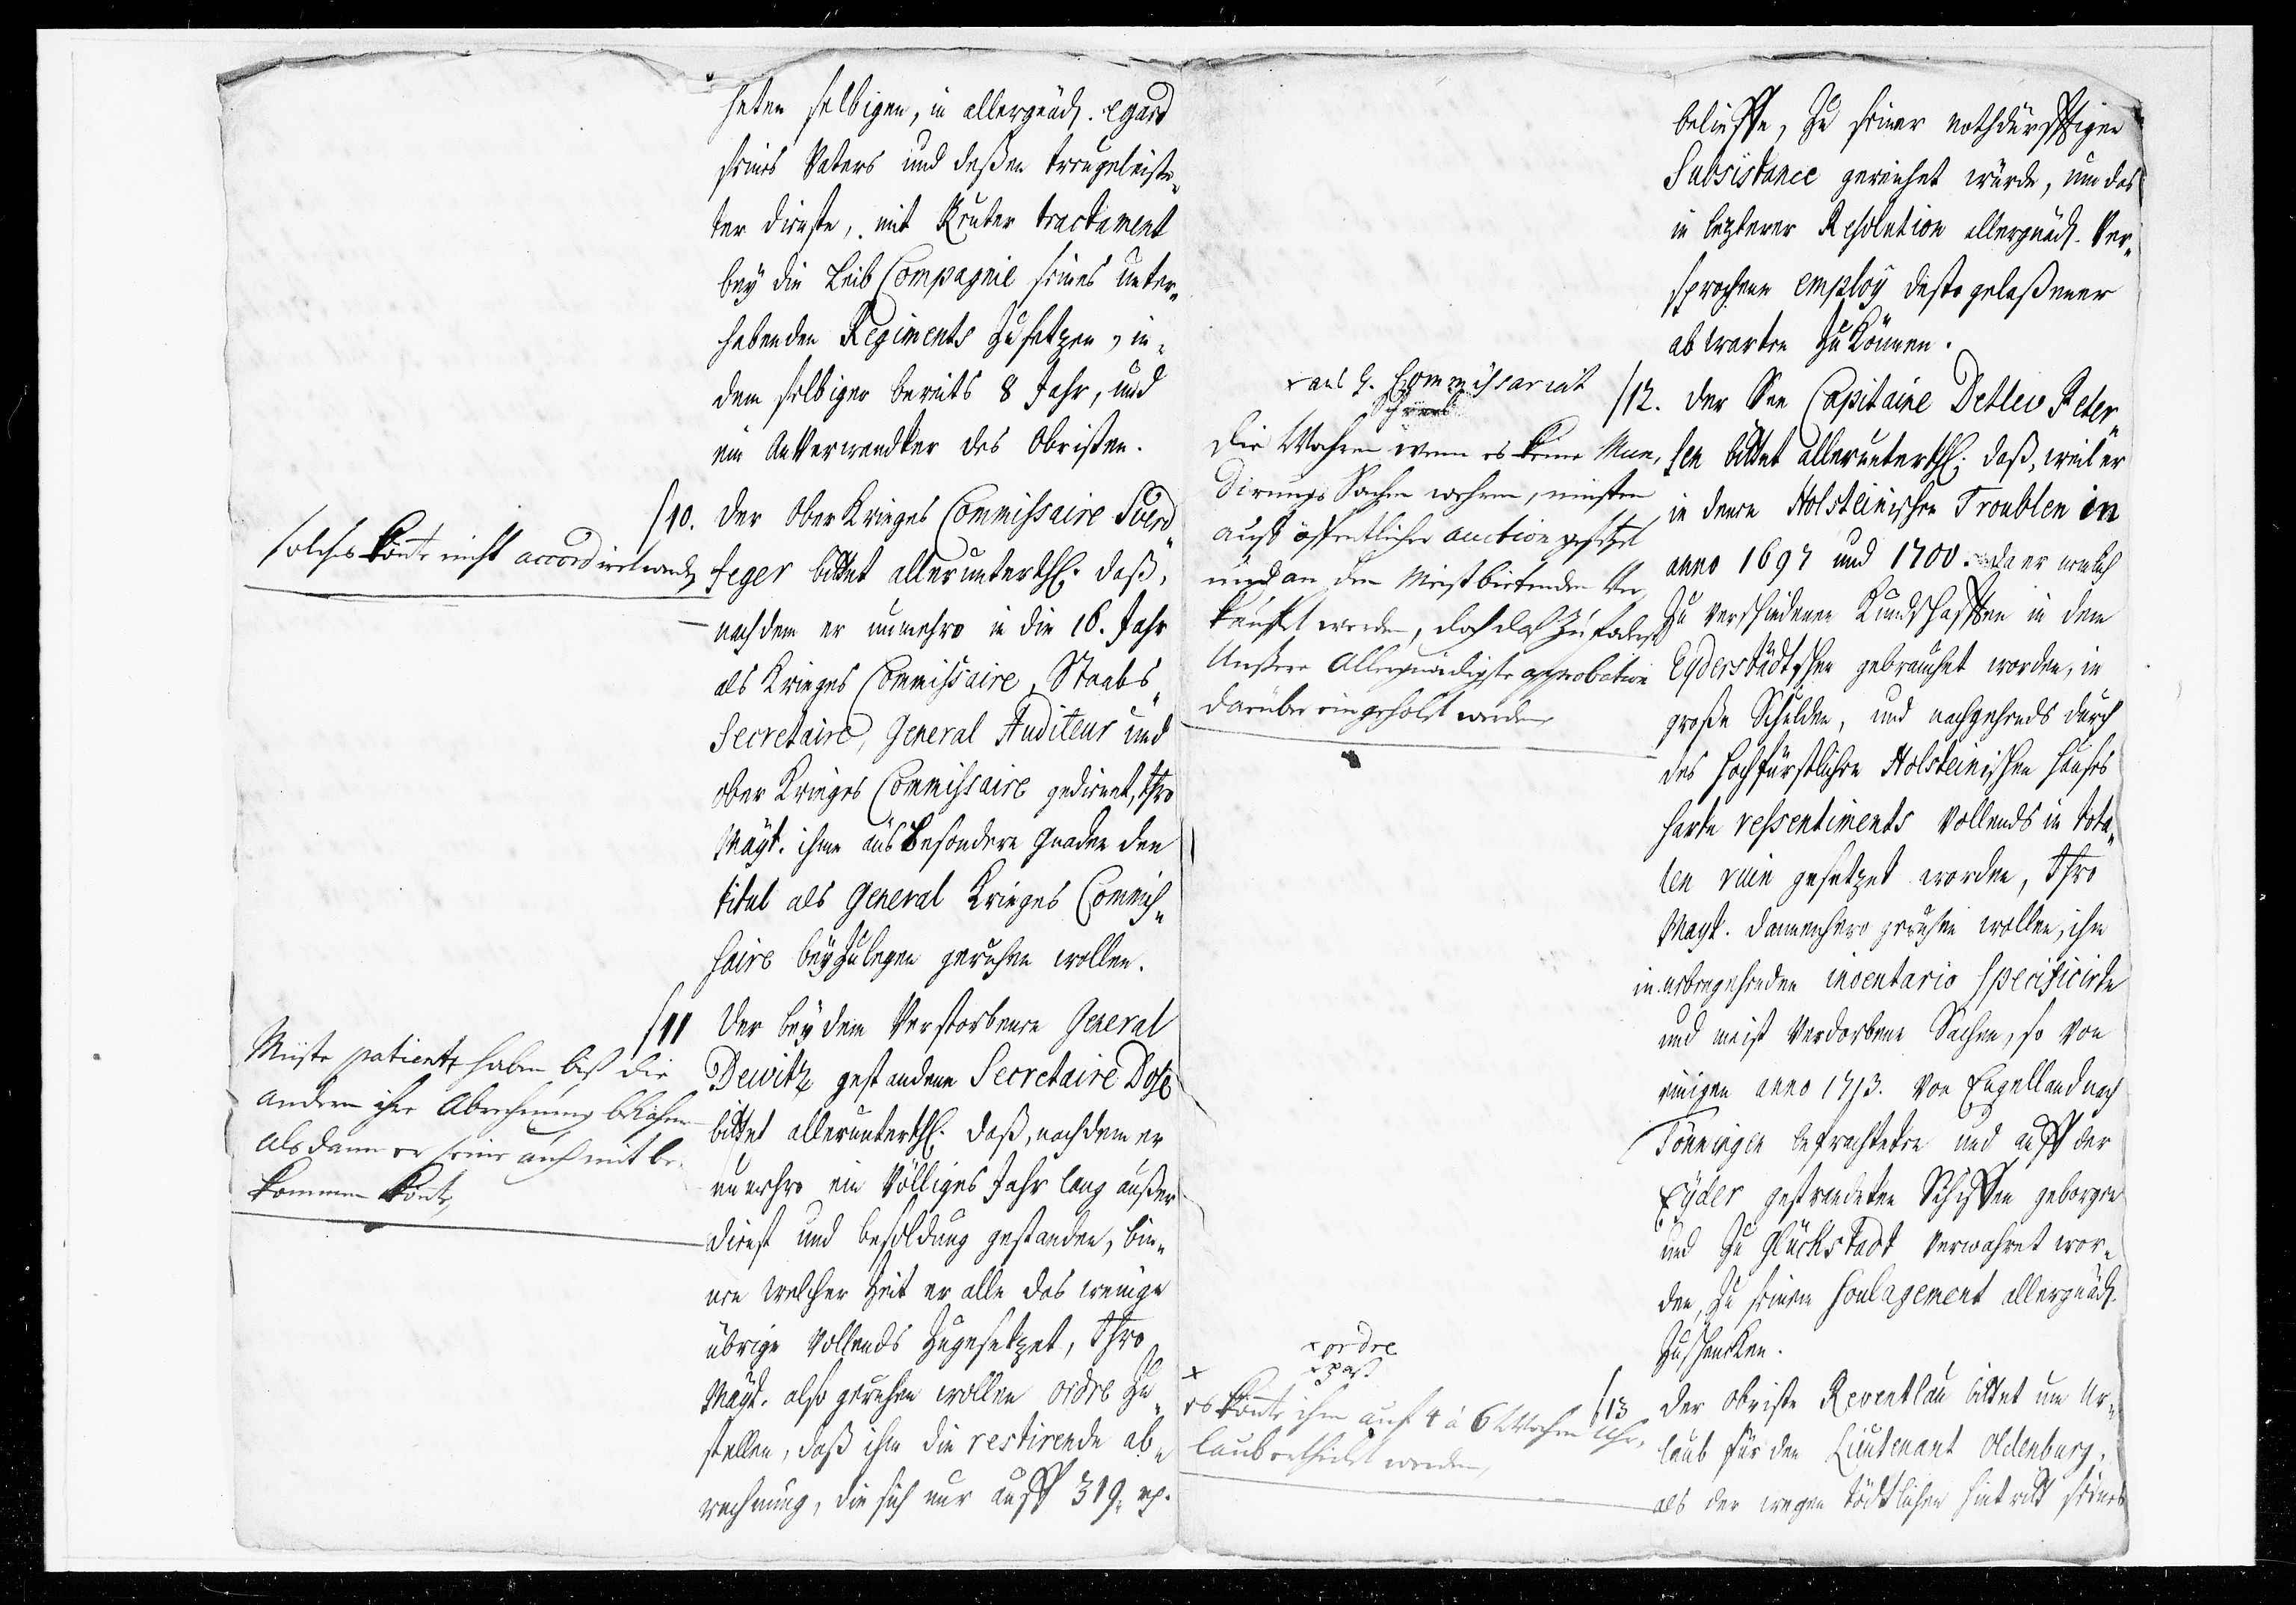 heten selbigen, in allergnäd. egard
seines Vaters und deßen treugeleiste„
ter dienste, mit Reuter tractament
bey die Leib Compagnie seines unter„
habenden Regiments zusetzen, in„
dem selbiger bereits 8 Jahr, und
ein Anverwandter des Obristen.
/10. Der Ober Krieges Commissaire Suerd„
solches könte nicht accordiret werden
feger bittet allerunterth. daß,
nachdem er nunmehro in die 16. Jahr
als Krieges Commissaire, Staabs„
Secretaire, General Auditeur und
Ober Krieges Commissaire gedienet, Ihro
Mayt. ihme aus besondere Gnaden den
titul als General Krieges Commis„
saire beyzulegen geruhen wollen.
/11 Der bey dem Verstorbenen General
Dewitz gestandene Secretaire Dose
bittet allerunterth. daß, nachdem er
nunmehro ein Völliges Jahr lang außer
dienst und besoldung gestanden, bin„
nen welcher Zeit er alle das wenige
übrige Vollends zugesetzet, Ihro
Mayt. also geruhen wollen ordre zu„
stellen, daß ihm die restirende ab„
rechnung, die sich nur auff 319. rp.
Müste patientz haben biß die
andern ihre Abrechnung bekähmen
alsdann er seine auch mit be„
kommen könte,
belieffe, zu seiner nothdürfftigen
Subsistance gereichet würde, um das
in letzterer Resolution allergnäd. Ver„
sprochene employ desto gelaßener
abwarten zu können.
/12. Der See Capitaine Detlev Peter„
sen bittet allerunterth. daß, weil er
in denen Holsteinischen Troublen in
anno 1697 und 1700. da er nemlich
zu verschiedenen Kundschafften in dem
Eyderstädtschen gebrauchet worden, in
große Schulden, und nachgehends durch
des Hochfürstlichen Holsteinischen Hauses
harte ressentiments Vollends in tota„
len ruin gesetzet worden, Ihro
Mayt. dannenhero geruhen wollen, ihm
in nebengehenden inventario specificirte
und meist Verdorbene Sachen, so von
einigen anno 1713. von Engelland nach
Tönningen befrachteten und auff der
Eyder gestrandeten Schiffen geborgen
und zu Glückstadt verwahret wor„
den, zu seinem soulagement allergnäd.
zuschencken.
x ans G. Commissariat
Die Wahren wenn es keine Mun„
dirungs Sachen wehren, müsten
auff öffentlicher auction gesetzet
und an den Meistbietenden Ver„
kauffet werden, doch daß zuforderst
Unßere Allergnädigste approbation
darüber eingeholet werden,
/13 Der Obriste Reventlau bittet um Ur„
laub für den Lieutenant Oldenburg,
als der wegen tödtlichen hintritt seines
x ordre
x pass
x
es könte ihm auf 4 à 6 Wochen Uhr„
laub ertheilet werden,